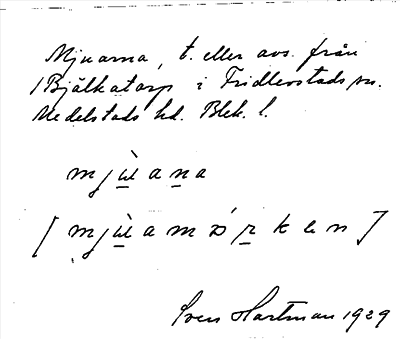 Mjuarna, t. eller avs. från
/Bjälkatorp i Fridlevstads sn.
Medelstads hd. Blek. l.
mjùana
[mjùamörken]
Sven Hartman 1929